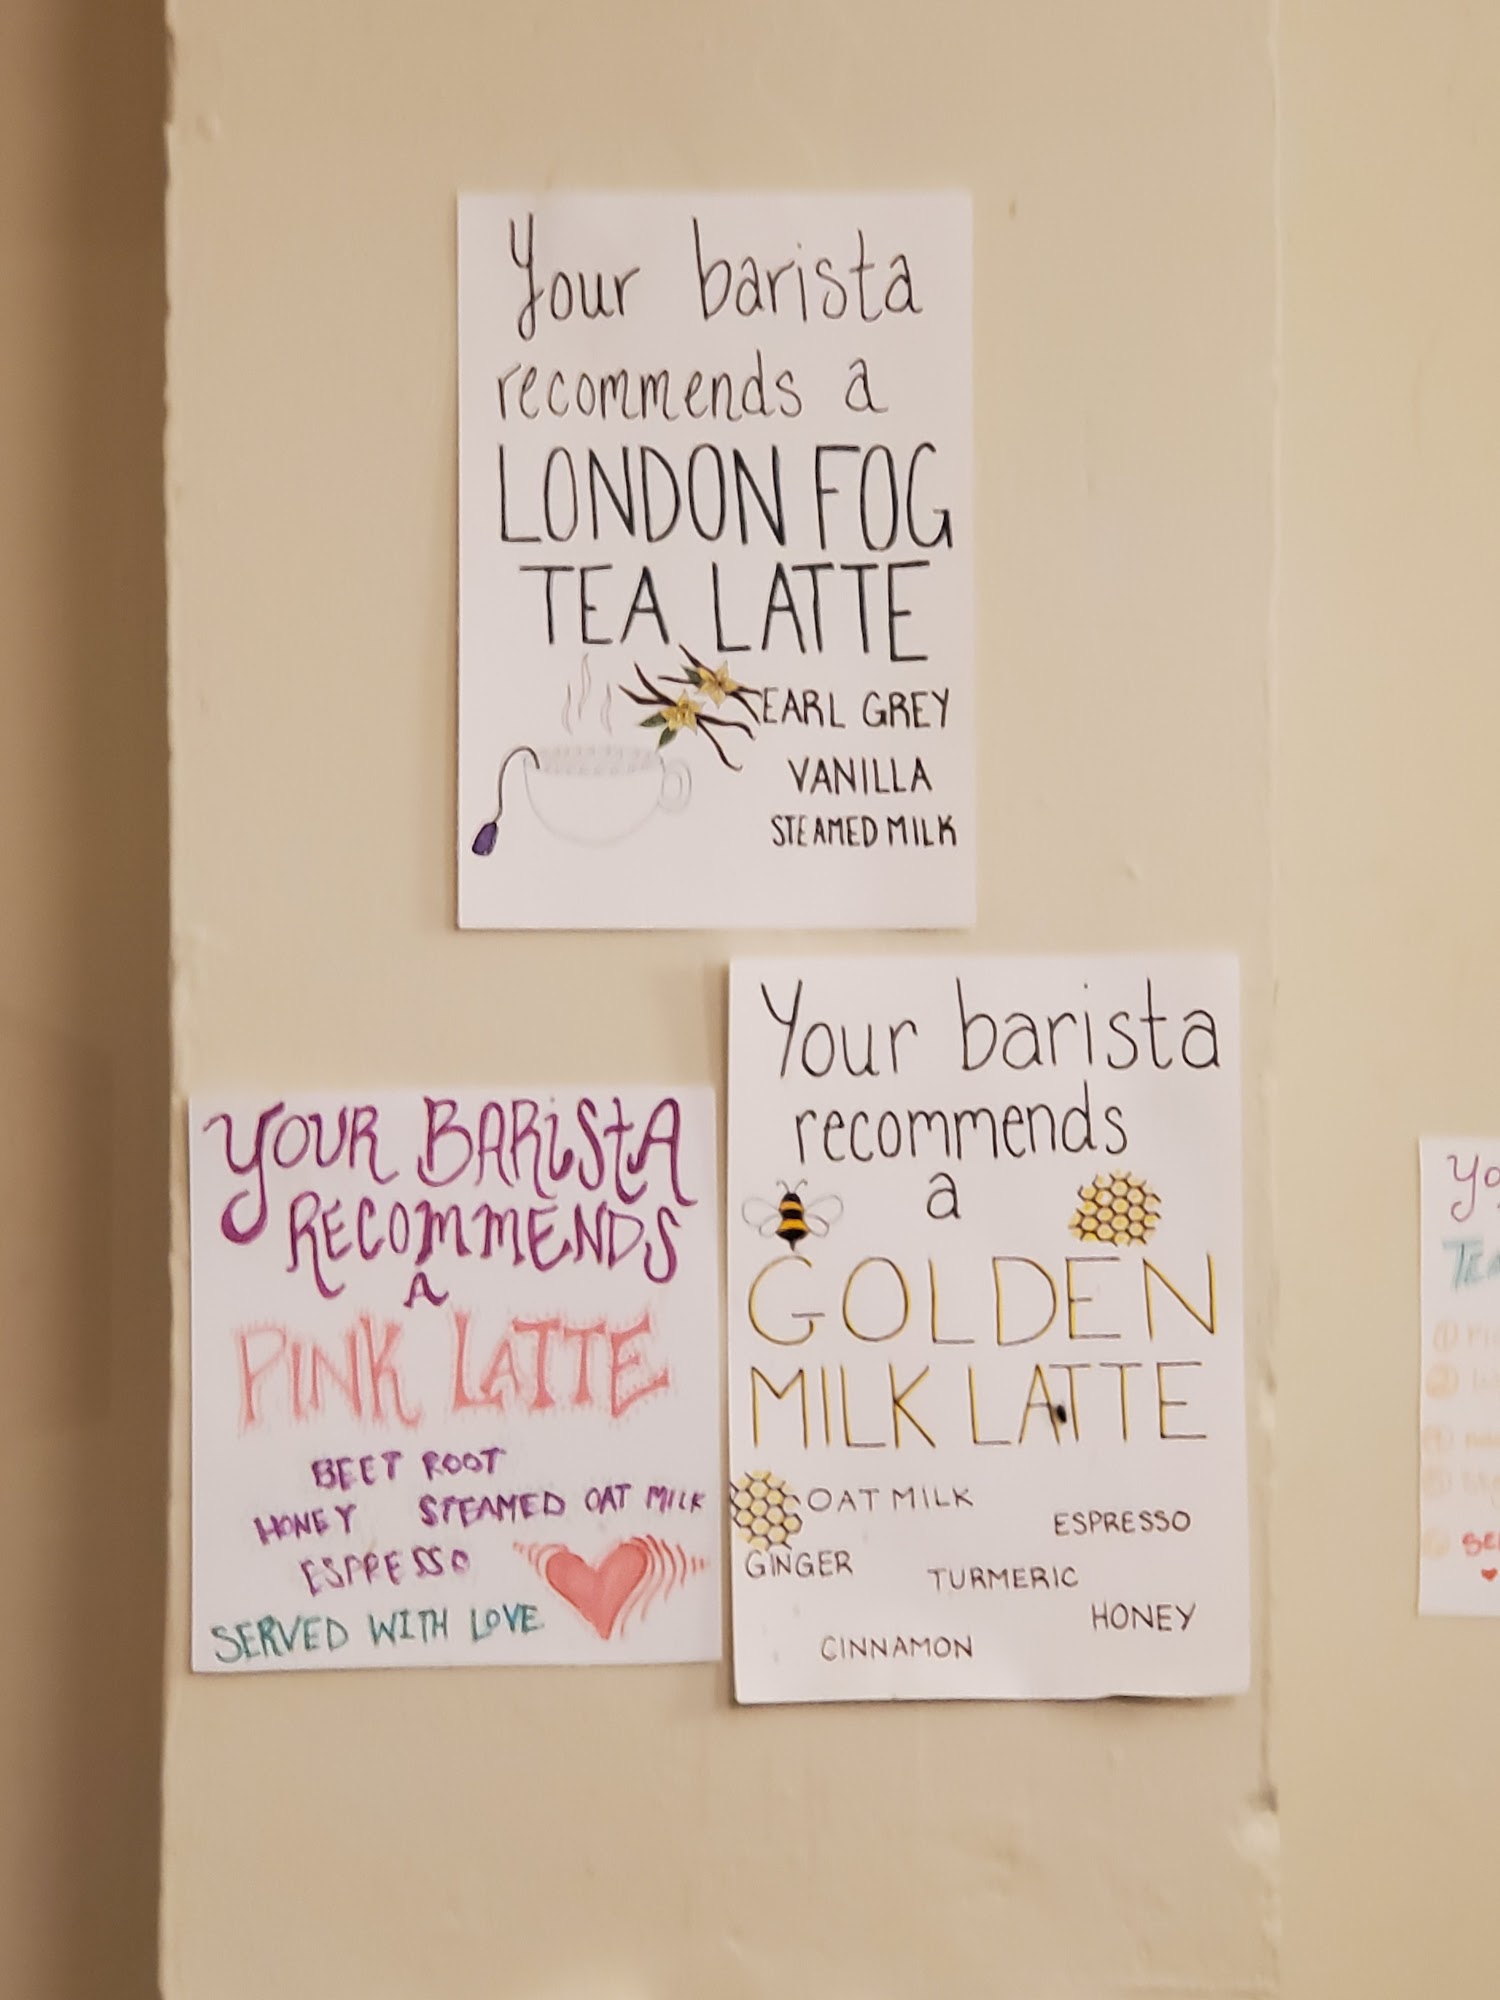 Your barista
recommends a
LONDON FOG
TEA LATTE
EARL GREY
VANILLA
STEAMED MILK
YOUR BARiStA
RECOMMENDS
A
PINK LATTE
BEET ROOT
HONEY STEAMED OAT MILK
ESPRESSO
SERVED WITH LOVE
Your barista
recommends
a
GOLDEN
MILK LATTE
OAT MILK
ESPRESSO
GINGER
TURMERIC
HONEY
CINNAMON